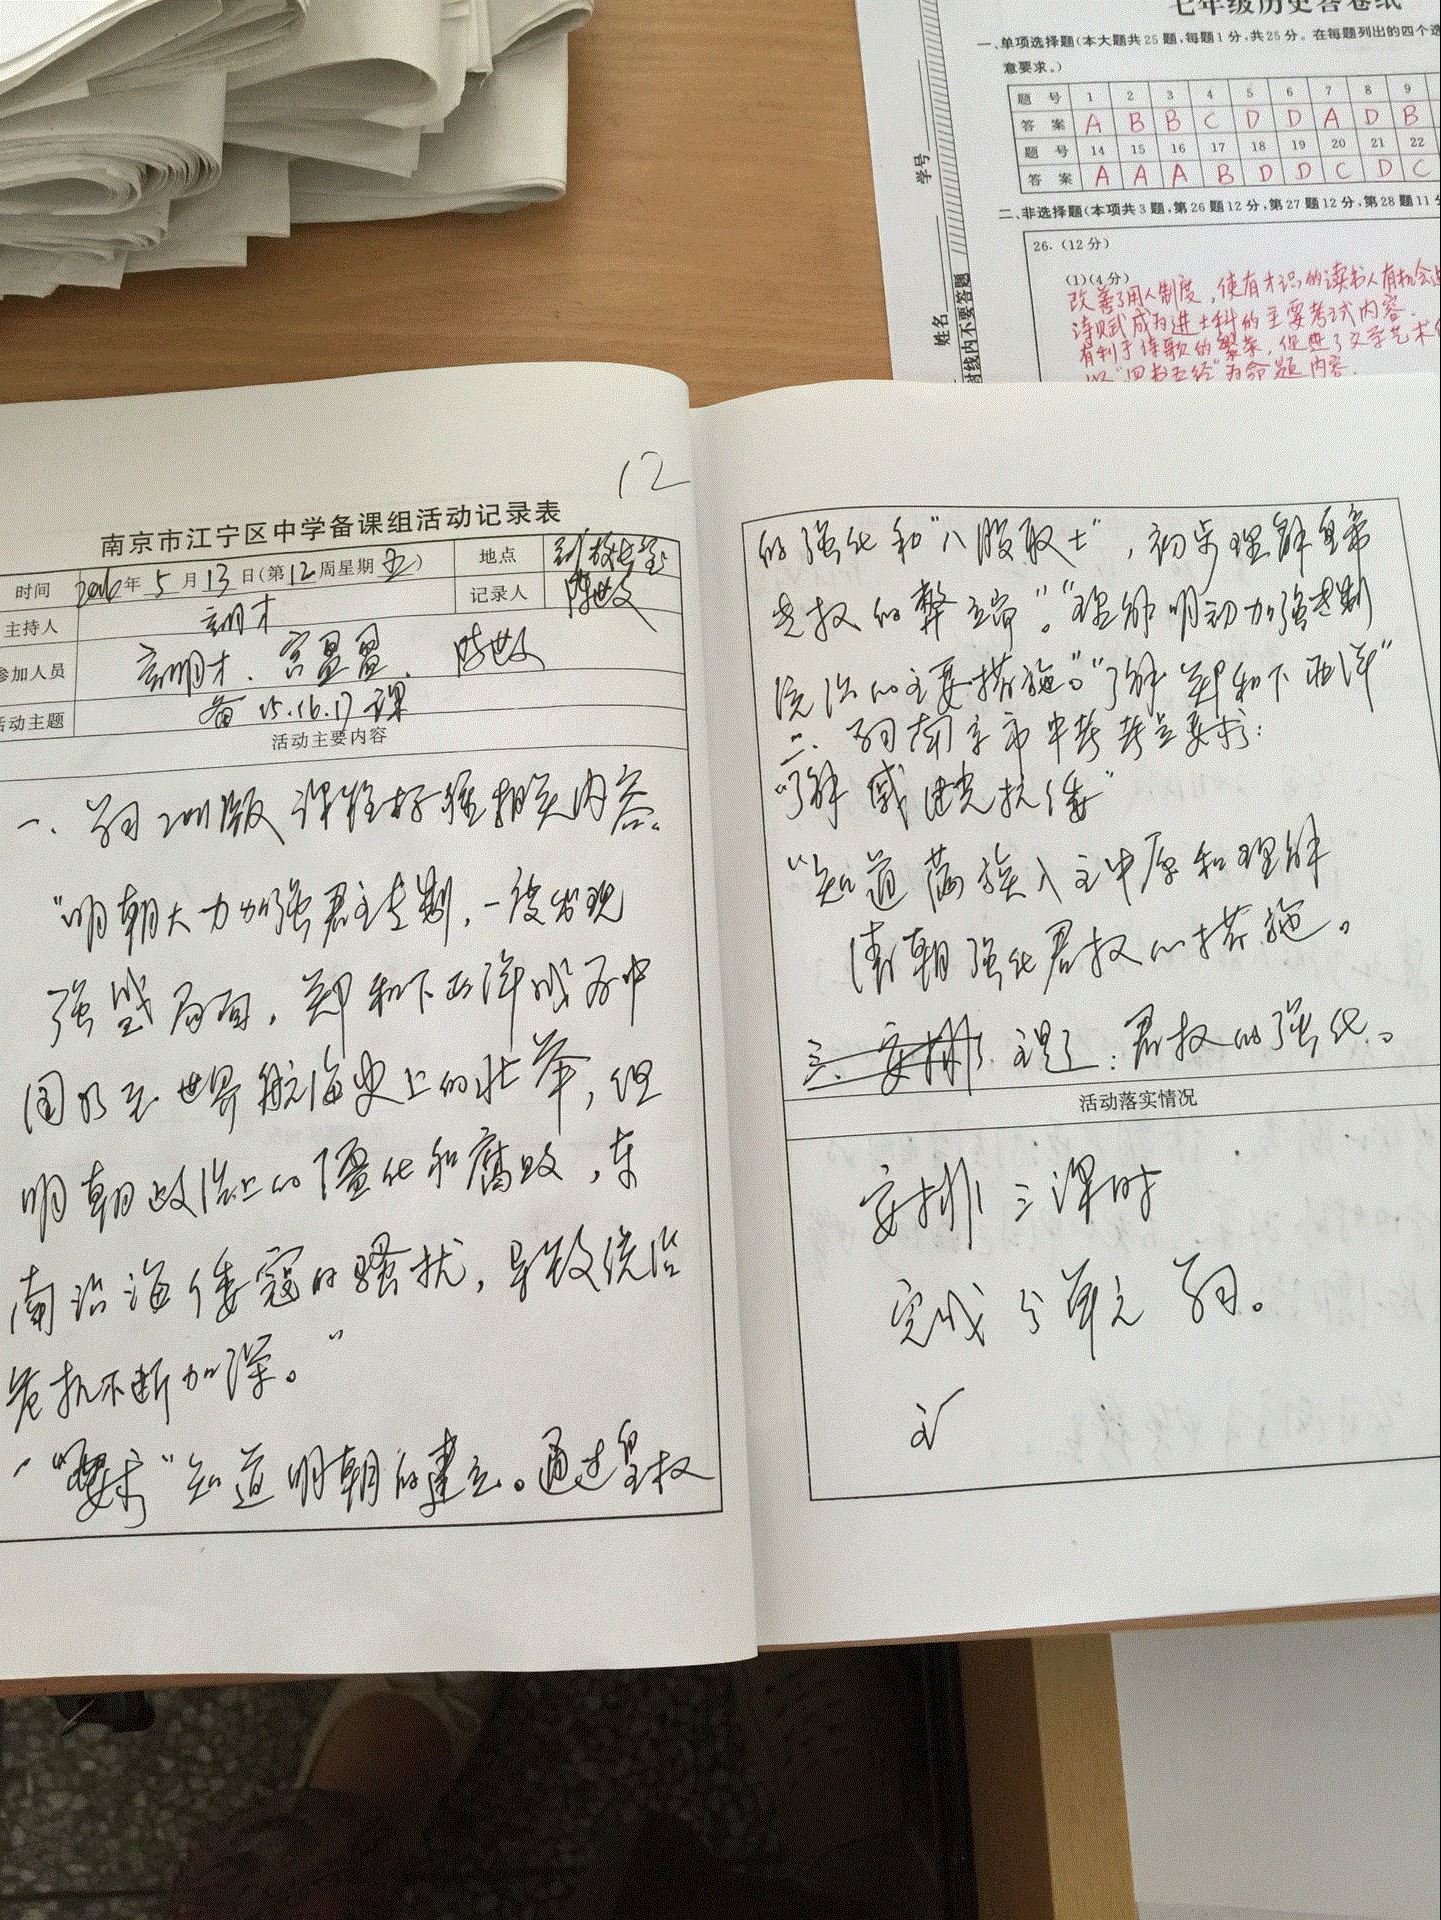 七年级历史答卷纸
一、单项选择题(本大题共25题,每题1分,共25分。在每题列出的四个选
意要求。)
题 号 1 2 3 4 5 6 7 8 9
答 案 A B B C D D A D B
题 号 14 15 16 17 18 19 20 21 22
答 案 A A A B D D C D C
二、非选择题(本项共3题,第26题12分,第27题12分,第28题11分
26.(12分)
(1)(4分)
改善了用人制度,使有才识的读书人有机会
诗赋成为进士科的主要考试内容.
有利于诗歌的繁荣,促进了文学艺术
以"四书五经"为命题内容.
学号
姓名
封线内不要答题
12
南京市江宁区中学备课组活动记录表
时间 2016年5月13日(第12周星期五) 地点
主持人 记录人 陈世文
参加人员 陈世文
活动主题 备15.16.17课
活动主要内容
一、学习2011版课程标准相关内容。
"明朝大力加强君主专制,一度出现
强盛局面,郑和下西洋成为中
国乃至世界航海史上的壮举,但
明朝政治上的僵化和腐败,东
南沿海倭寇的骚扰,导致统治
危机不断加深。"
"要求"知道明朝的建立。通过皇权
的强化和"八股取士",初步理解皇帝
专权的弊端"。"理解明初加强专制
统治的主要措施。""了解郑和下西洋"
二、学习南京市中考考点要求:
"了解戚继光抗倭"
"知道满族入主中原和理解
清朝强化君权的措施。
三、安排.主题:君权的强化。
活动落实情况
安排三课时
完成与单元学习。